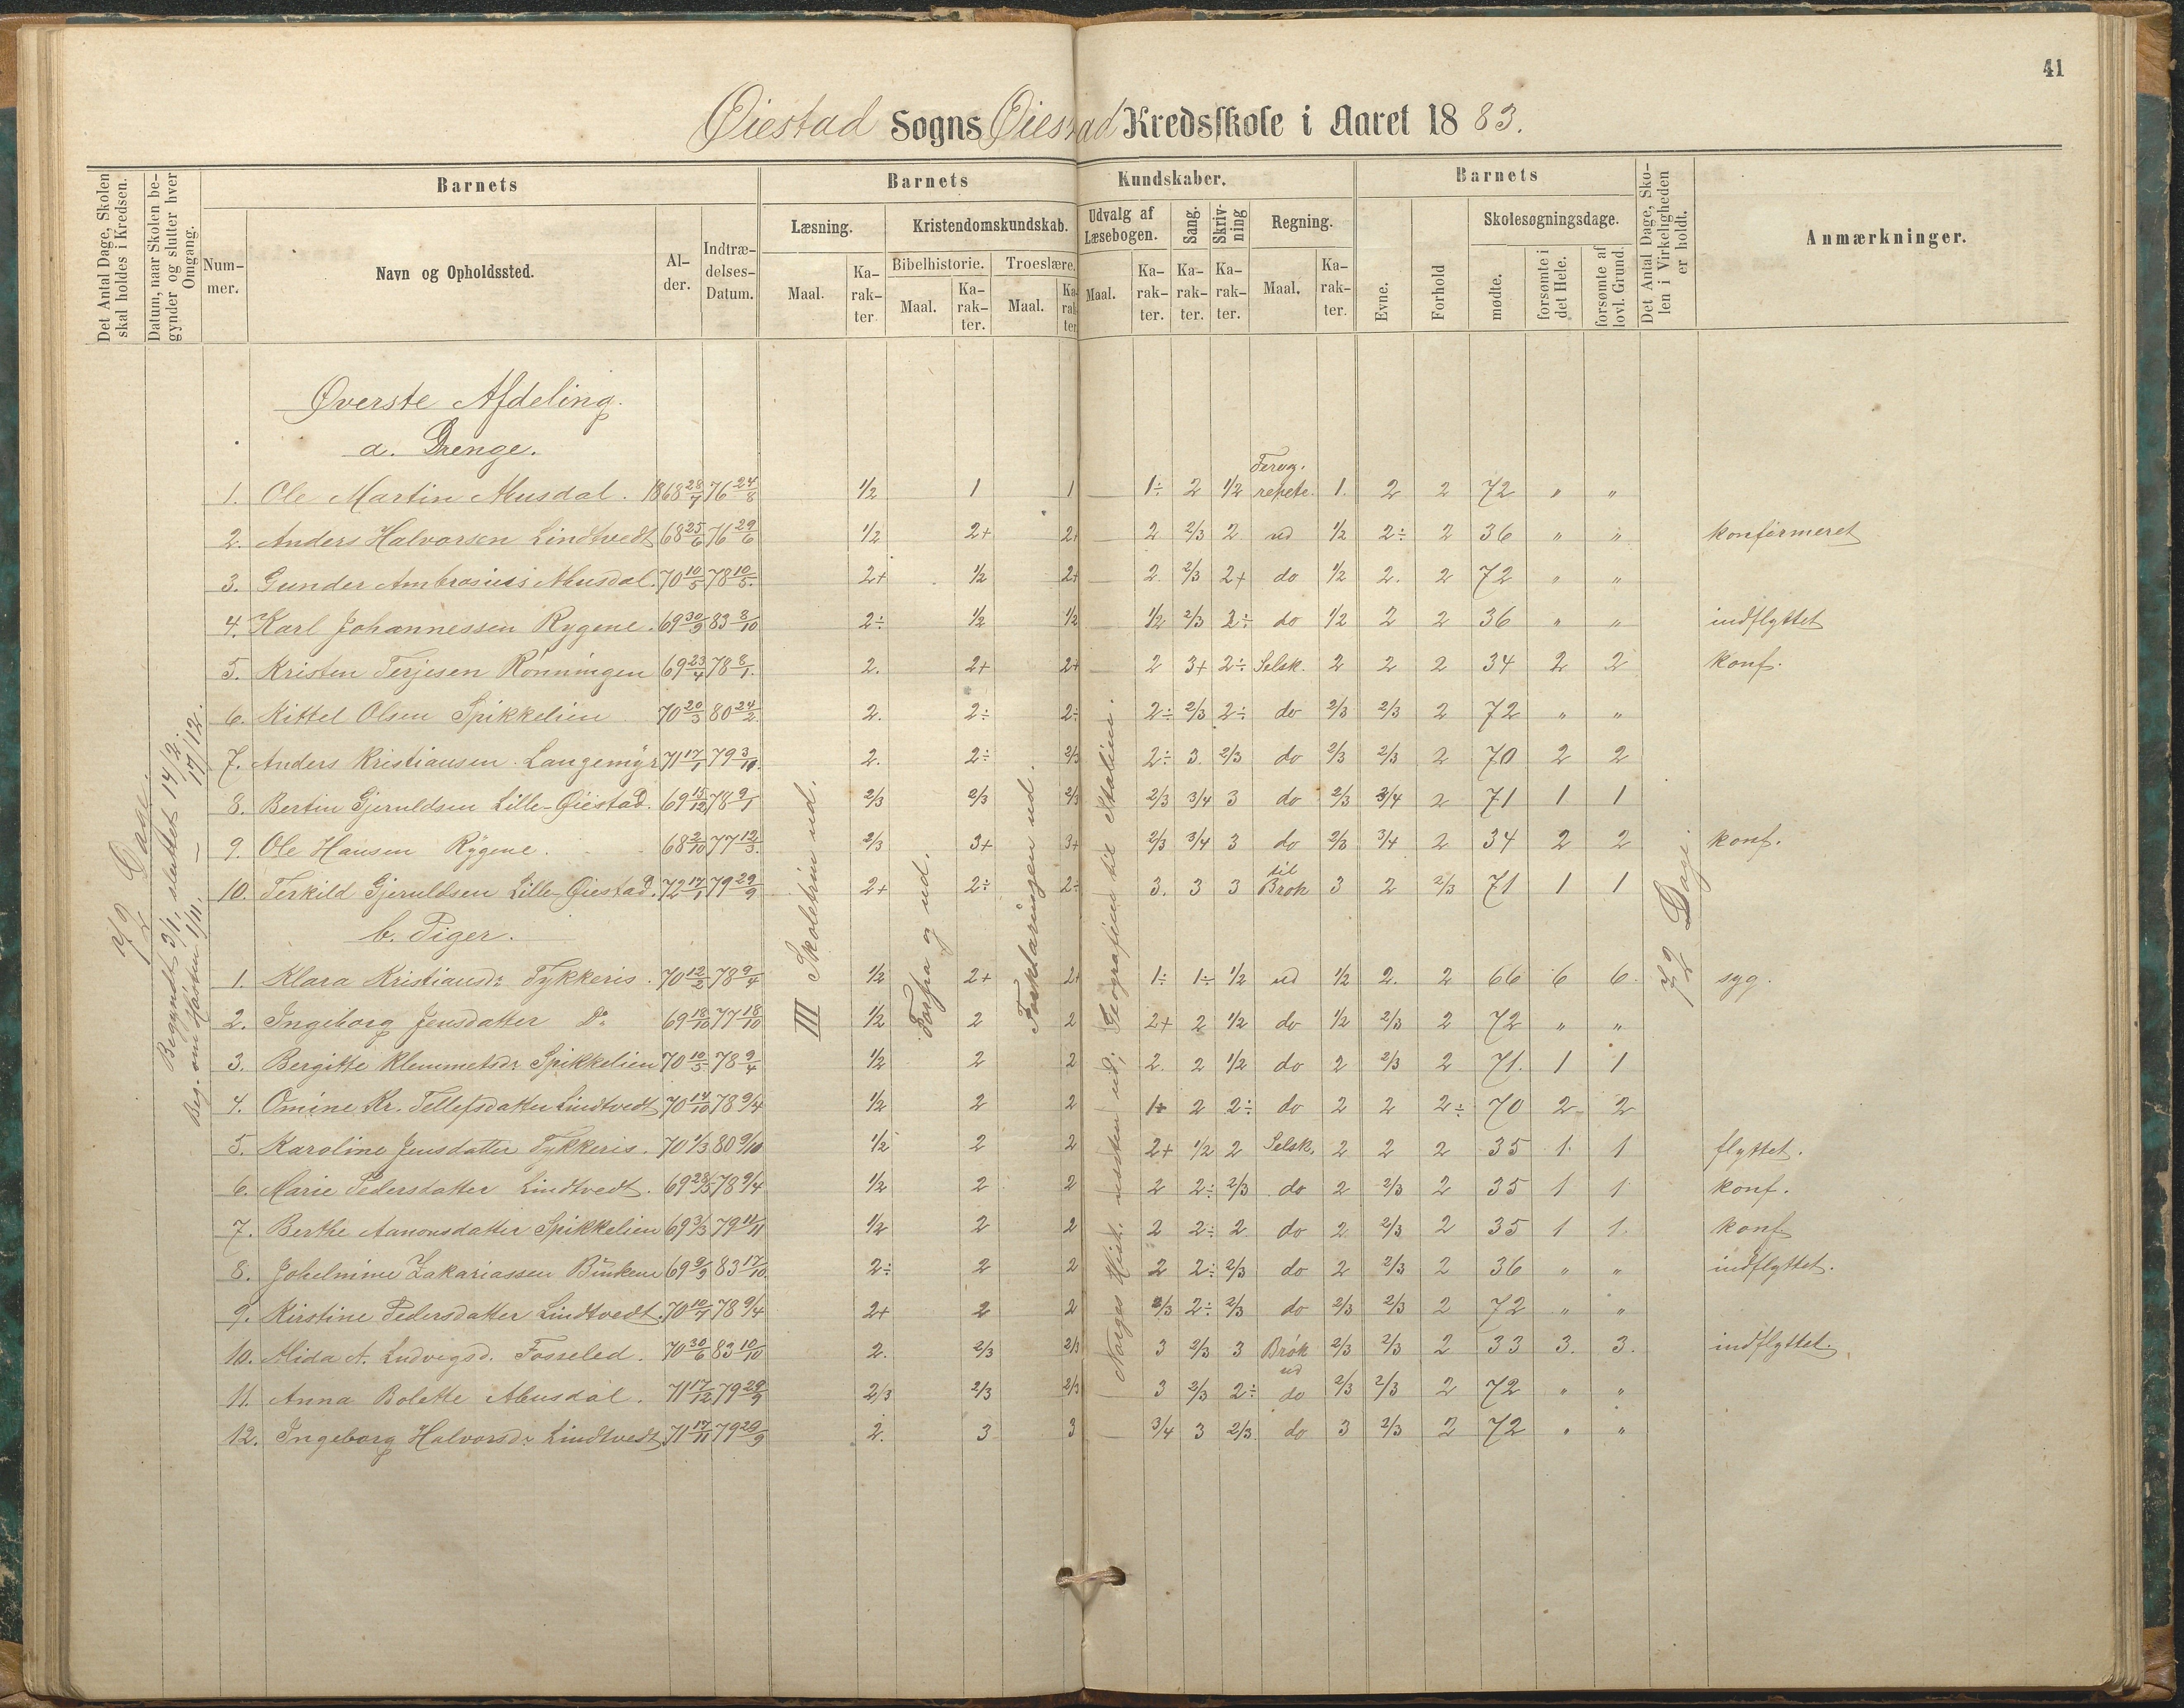 41
Øiestad Sogns Øiestad Kredsskole i Aaret 1883.
Det Antal Dage, Skolen skal holdes i Kredsen.
Datum, naar Skolen begynder og slutter hver Omgang.
Barnets
Nummer.
Navn og Opholdssted.
Alder.
Indtrædelses-Datum.
Barnets Kundskaber.
Læsning.
Maal.
Karakter
Kristendomskundskab.
Bibelhistorie.
Maal.
Karakter.
Troeslære.
Maal.
Karakter
Udvalg af Læsebogen.
Maal.
Karakter.
Sang.
Karakter.
Skrivning
Karakter.
Regning.
Maal.
Karakter.
Barnets
Evne.
Forhold
Skolesøgningsdage.
mødte.
forsømte i det Hele.
forsømte af lovl. Grund.
Det Antal Dage, Skolen i Virkeligheden er holdt.
Anmærkninger.
72 Dage.
Begyndt 3/1, sluttet 14/2.
Beg. om Høsten 1/11. — 17/12.
III Skoletrin ud.
Forfra og ud.
Forklaringen ud.
Norges Hist. ud; Geografien til Italien.
72 Dage
Øverste Afdeling.
a. Drenge.
1. Ole Martin Musdal. 1868 28/7 76 24/8 1/2 1 1 — 1÷ 2 1/2 repete. 1. 2 2 72 " "
2. Anders Halvorsen Lindtvedt 68 25/6 76 29/6 1/2 2+ 2+ — 2 2/3 2 ud 1/2 2÷ 2 36 " " konfirmeret
3. Gunder Ambrosius Musdal. 70 10/5 78 10/5. 2+ 1/2 2+ — 2. 2/3 2+ do 1/2 2. 2 72 " "
4. Karl Johannessen Rygene. 69 30/9 83 8/10 2÷ 1/2 1/2 1/2 2/3 2÷ do 1/2 2 2 36 " " indflyttet
5. Kristen Terjesen Rönningen 69 23/4 78 8/1. 2. 2+ 2+ — 2 3+ 2÷ Selsk. 2 2 2 34 2 2 konf.
6. Kittel Olsen Spikkelien 70 20/3 80 24/2. 2. 2÷ 2÷ 2÷ 2/3 2÷ do 2/3 2/3 2 72 " "
7. Anders Kristiansen Langemyr 71 17/1 79 3/10. 2. 2÷ 2/3 2÷ 3 2/3 do 2/3 2/3 2 70 2 2
8. Bertin Gjeruldsen Lille-Øiestad. 69 15/12 78 9/1 2/3 2/3 2/3 2/3 3/4 3 do 2/3 3/4 2 71 1 1
9. Ole Hansen Rygene. 68 2/10 77 12/3. 2/3 3+ 3+ 2/3 3/4 3 do 2/3 3/4 2 34 2 2 konf.
10. Terkild Gjeruldsen Lille-Øiestad. 72 17/1 79 29/9 2+ 2÷ 2÷ 3. 3 3 til Brøk 3 2 2/3 71 1 1
b. Piger.
1. Klara Kristiansd: Tykkeris. 70 12/2 78 9/4 1/2 2+ 2+ 1÷ 1÷ 1/2 ud 1/2 2. 2 66 6 6. syg.
2. Ingeborg Jensdatter Do 69 18/10 77 18/10 1/2 2 2 2+ 2 1/2 do 1/2 2/3 2 72 " "
3. Bergitte Klemmetsdr Spikkelien 70 10/5 78 9/4 1/2 2 2 2. 2 1/2 do 2 2/3 2 71. 1 1
4. Omine Kr. Tellefsdatter Lindtvedt 70 14/10 78 9/4 1/2 2 2 1÷ 2 2÷ do 2 2 2÷ 70 2 2
5. Karoline Jensdatter Tykkeris. 70 1/3 80 9/10 1/2 2 2 2+ 1/2 2 Selsk. 2 2 2 35 1. 1 flyttet.
6. Marie Pedersdatter Lindtvedt. 69 28/5 78 9/4 1/2 2 2 2 2÷ 2/3 do 2 2/3 2 35 1 1 konf.
7. Berthe Aanonsdatter Spikkelien 69 3/3 79 11/11 1/2 2 2 2 2÷ 2 do 2 2/3 2 35 1 1. konf.
8. Johelmine Zakariassen Binkene 69 9/9 83 17/10. 2÷ 2 2 2 2÷ 2/3 do 2 2/3 2 36 " " indflyttet.
9. Kirstine Pedersdatter Lindtvedt. 70 10/7 78 9/4 2+ 2 2 2/3 2÷ 2/3 do 2/3 2/3 2 72 " "
10. Alida A. Ludvigsd. Fosseled. 70 30/6 83 10/10 2. 2/3 2/3 3 2/3 3 Brøk ud 2/3 2/3 2 33 3. 3. indflyttet.
11. Anna Bolette Musdal. 71 17/12 79 29/9 2/3 2/3 2/3 3 2/3 2÷ do 2/3 2/3 2 72 " "
12. Ingeborg Halvorsd: Lindtvedt 71 17/11 79 29/9 2. 3 3 3/4 3 2/3 do 3 2/3 2 72 " "